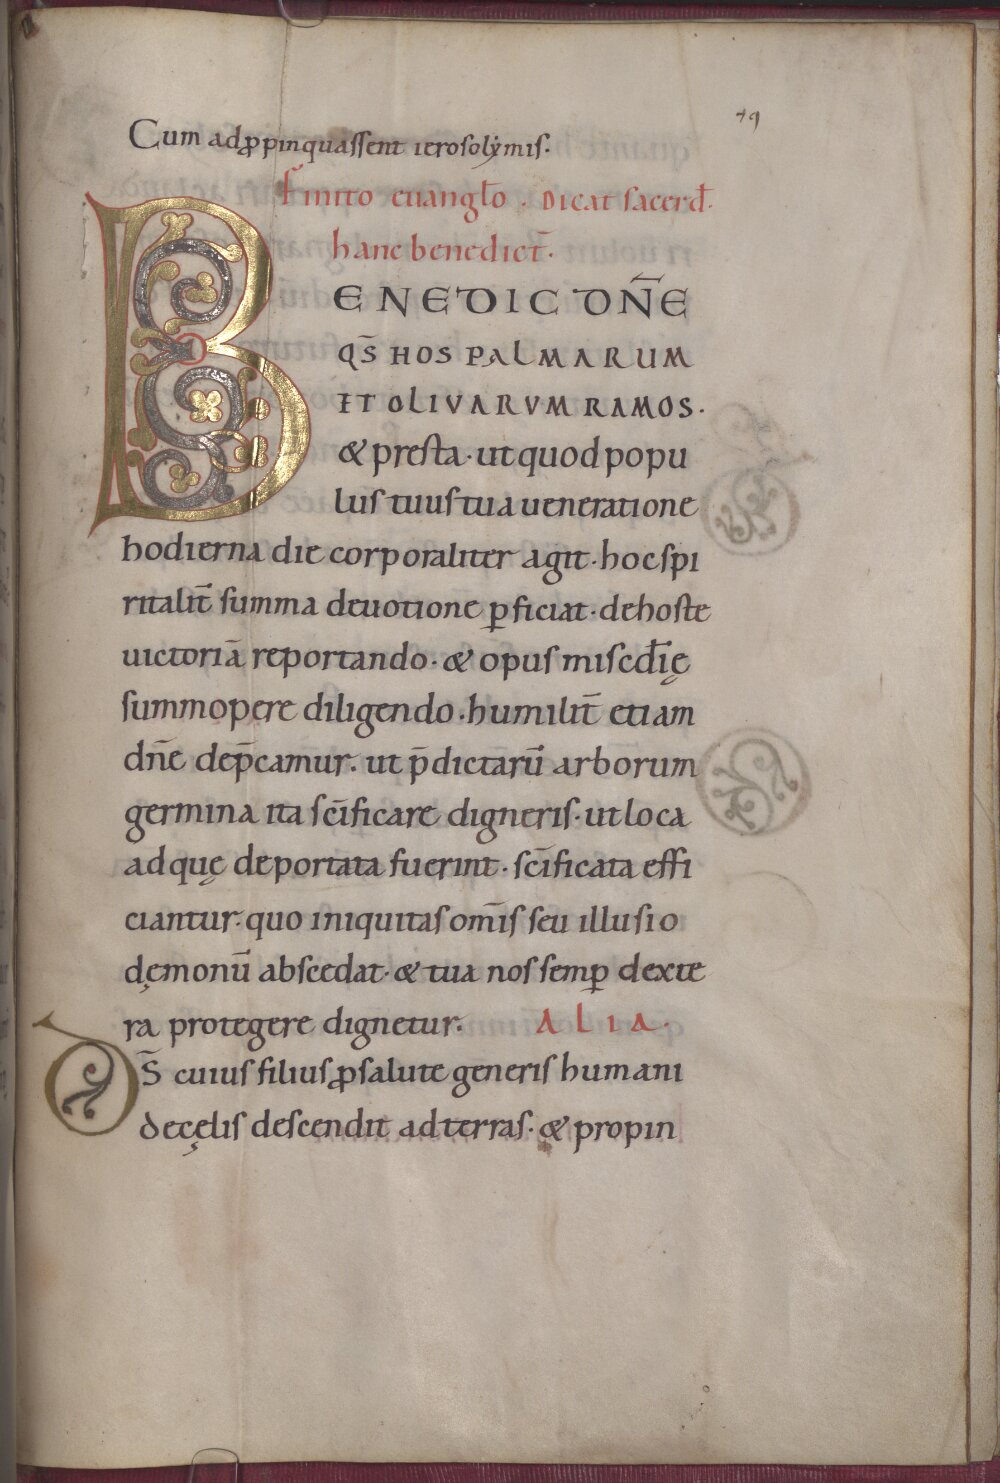 49
Cum adꝓpinquassent ierosolẏmis·
Finito euangło . Dicat sacerđ·
hanc benedict̄·
BENEDIC DN̄E
QS̄ HOS PALMARUM
ET OLIVARVM RAMOS·
& presta· ut quod popu
lus tuus tua ueneratione
hodierna die corporaliter agit· hoc spi
ritalit̄ summa deuotione ꝑficiat· de hoste
uictoriā reportando· & opus misc̄dię
summopere diligendo· humilit̄ etiam
dn̄e dep̄camur· ut p̄dictarū arborum
germina ita sc̄ificare digneris· ut loca
ad quę deportata fuerint· sc̄ificata effi
ciantur· quo iniquitas om̄is seu illusio
dęmonū abscedat· & tua nos semꝑ dexte
ra protegere dignetur· ALIA·
DS̄ cuius filius ꝓ salute generis humani
de cęlis descendit ad terras· & propin